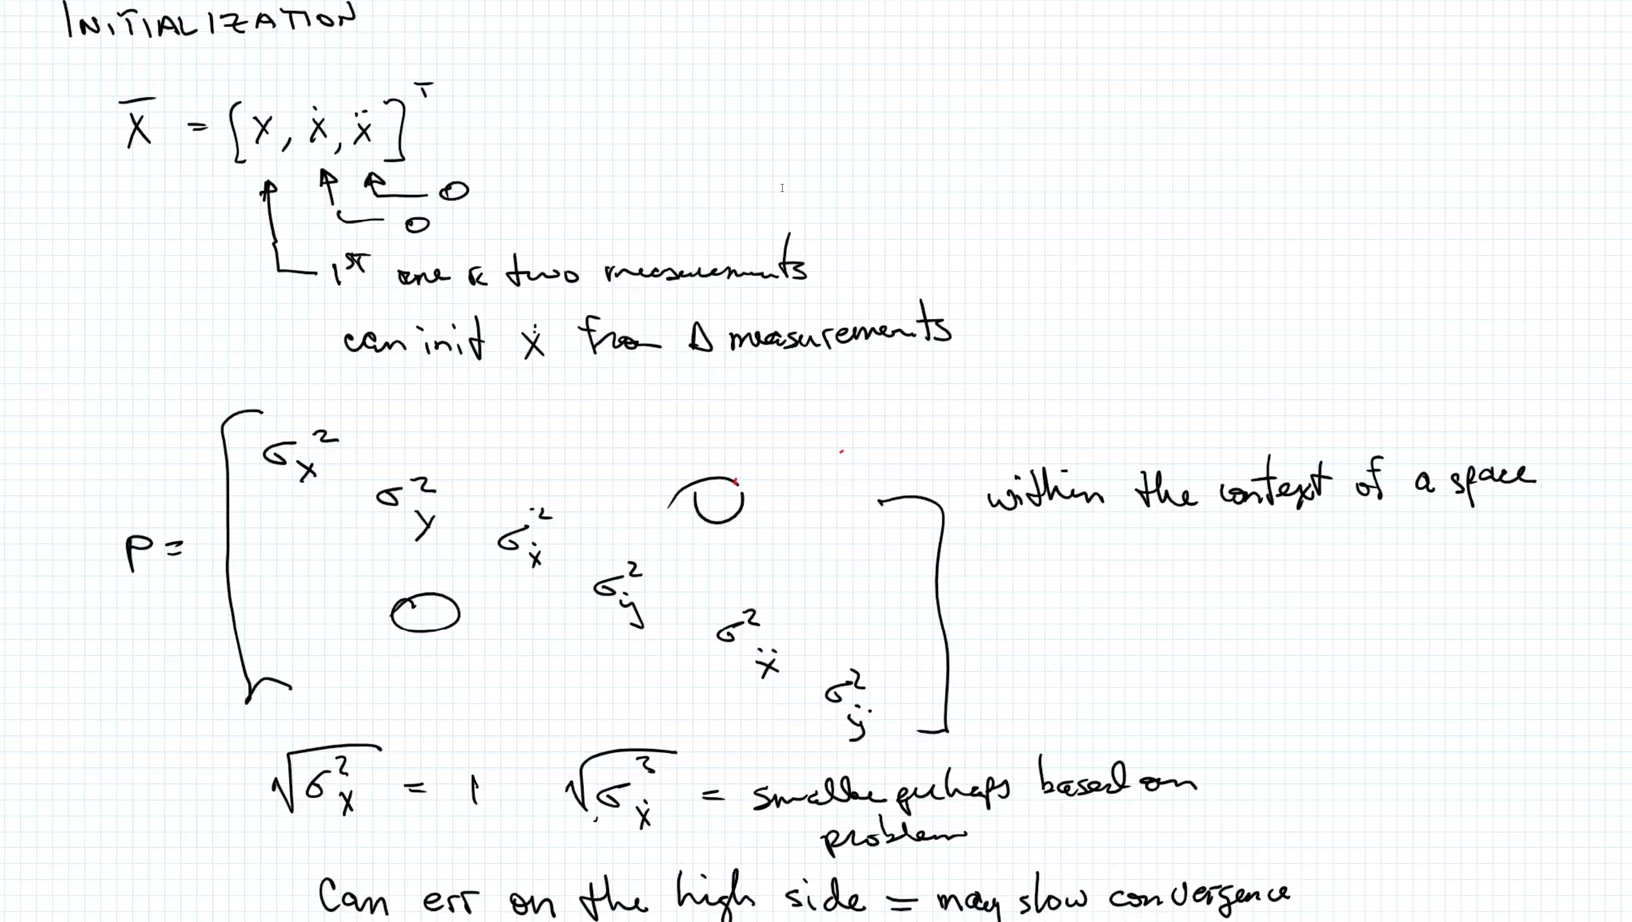 INITIALIZATION
X̄ = [x, ẋ, ẍ]ᵀ
0
0
1ST one or two measurements
can init ẋ from Δ measurements
P =
σₓ²
σ_y²
σ_ẋ²
σ_ẏ²
σ_ẍ²
σ_ÿ²
0
0
within the context of a space
√σₓ² = 1 √σ_ẋ² = smaller perhaps based on
problem
Can err on the high side = may slow convergence